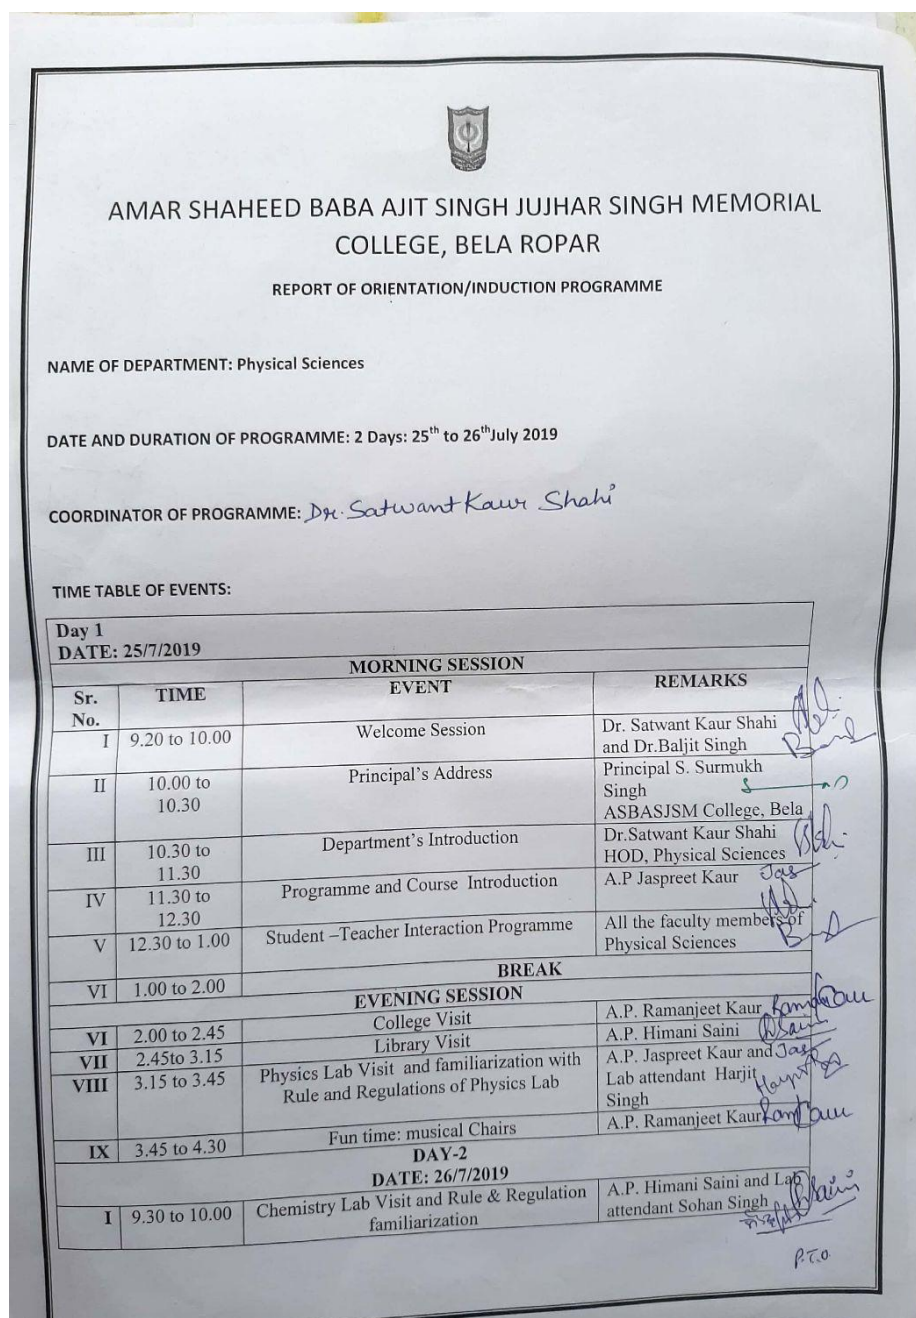 AMAR SHAHEED BABA AJIT SINGH JUJHAR SINGH MEMORIAL
COLLEGE, BELA ROPAR
REPORT OF ORIENTATION/INDUCTION PROGRAMME
NAME OF DEPARTMENT: Physical Sciences
DATE AND DURATION OF PROGRAMME: 2 Days: 25th to 26thJuly 2019
COORDINATOR OF PROGRAMME: Dr. Satwant Kaur Shahi
TIME TABLE OF EVENTS:
Day 1
DATE: 25/7/2019
MORNING SESSION
Sr. No. TIME EVENT REMARKS
I 9.20 to 10.00 Welcome Session Dr. Satwant Kaur Shahi
and Dr.Baljit Singh
II 10.00 to 10.30 Principal's Address Principal S. Surmukh
Singh
ASBASJSM College, Bela
III 10.30 to 11.30 Department's Introduction Dr.Satwant Kaur Shahi
HOD, Physical Sciences
IV 11.30 to 12.30 Programme and Course Introduction A.P Jaspreet Kaur Jas
V 12.30 to 1.00 Student –Teacher Interaction Programme All the faculty members of
Physical Sciences
VI 1.00 to 2.00 BREAK
EVENING SESSION
VI 2.00 to 2.45 College Visit A.P. Ramanjeet Kaur
VII 2.45to 3.15 Library Visit A.P. Himani Saini
VIII 3.15 to 3.45 Physics Lab Visit and familiarization with A.P. Jaspreet Kaur and Jas
Rule and Regulations of Physics Lab Lab attendant Harjit
Singh
IX 3.45 to 4.30 Fun time: musical Chairs A.P. Ramanjeet Kaur
DAY-2
DATE: 26/7/2019
I 9.30 to 10.00 Chemistry Lab Visit and Rule & Regulation A.P. Himani Saini and Lab
familiarization attendant Sohan Singh
P.T.O